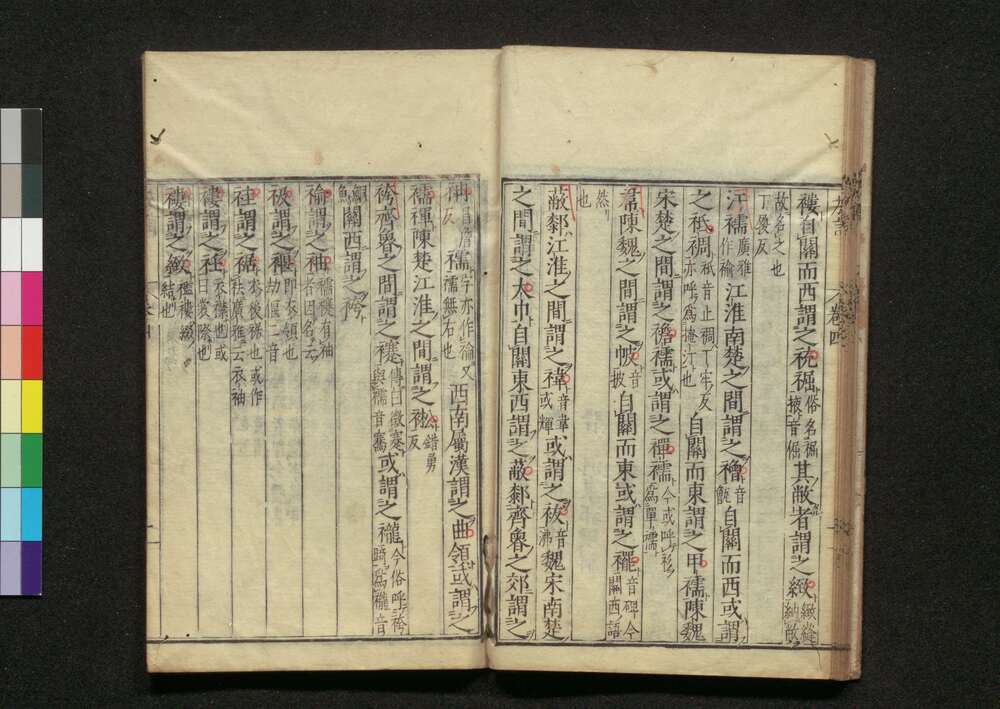 褸自關而西謂之䘪𧛾俗名𧛾掖音倔其敝者謂之緻緻縫納敝
故名之也
丁履反
汗襦廣雅作褕江淮南楚之間謂之䙢音甑自關而西或謂
之袛裯袛音止裯丁牢反亦呼爲掩汗也自關而東謂之甲襦陳魏
宋楚之間謂之襜襦或謂之襌襦今或呼衫爲單襦
帬陳魏之間謂之帔音披自關而東或謂之襬音碑今關西語
然也
蔽厀江淮之間謂之褘音韋或暉或謂之袚音沸魏宋南楚
之間謂之大巾自關東西謂之蔽厀齊魯之郊謂之
袡昌詹反襦字亦作褕又襦無右也西南屬漢謂之曲領或謂之
襦褌陳楚江淮之間謂之䘴錯勇反
袴齊魯之間謂之𧝑傳曰徵𧝑與襦音騫或謂之襱今俗呼袴踦爲襱音
鮦魚關西謂之袴
褕謂之袖襦𧞫有袖者因名云
衱謂之褗即衣領也劫偃二音
袿謂之裾衣後裾也或作袪廣雅云衣袖
褸謂之袵衣襟也或曰裳際也
褸謂之緻襤褸綴結也
卷四